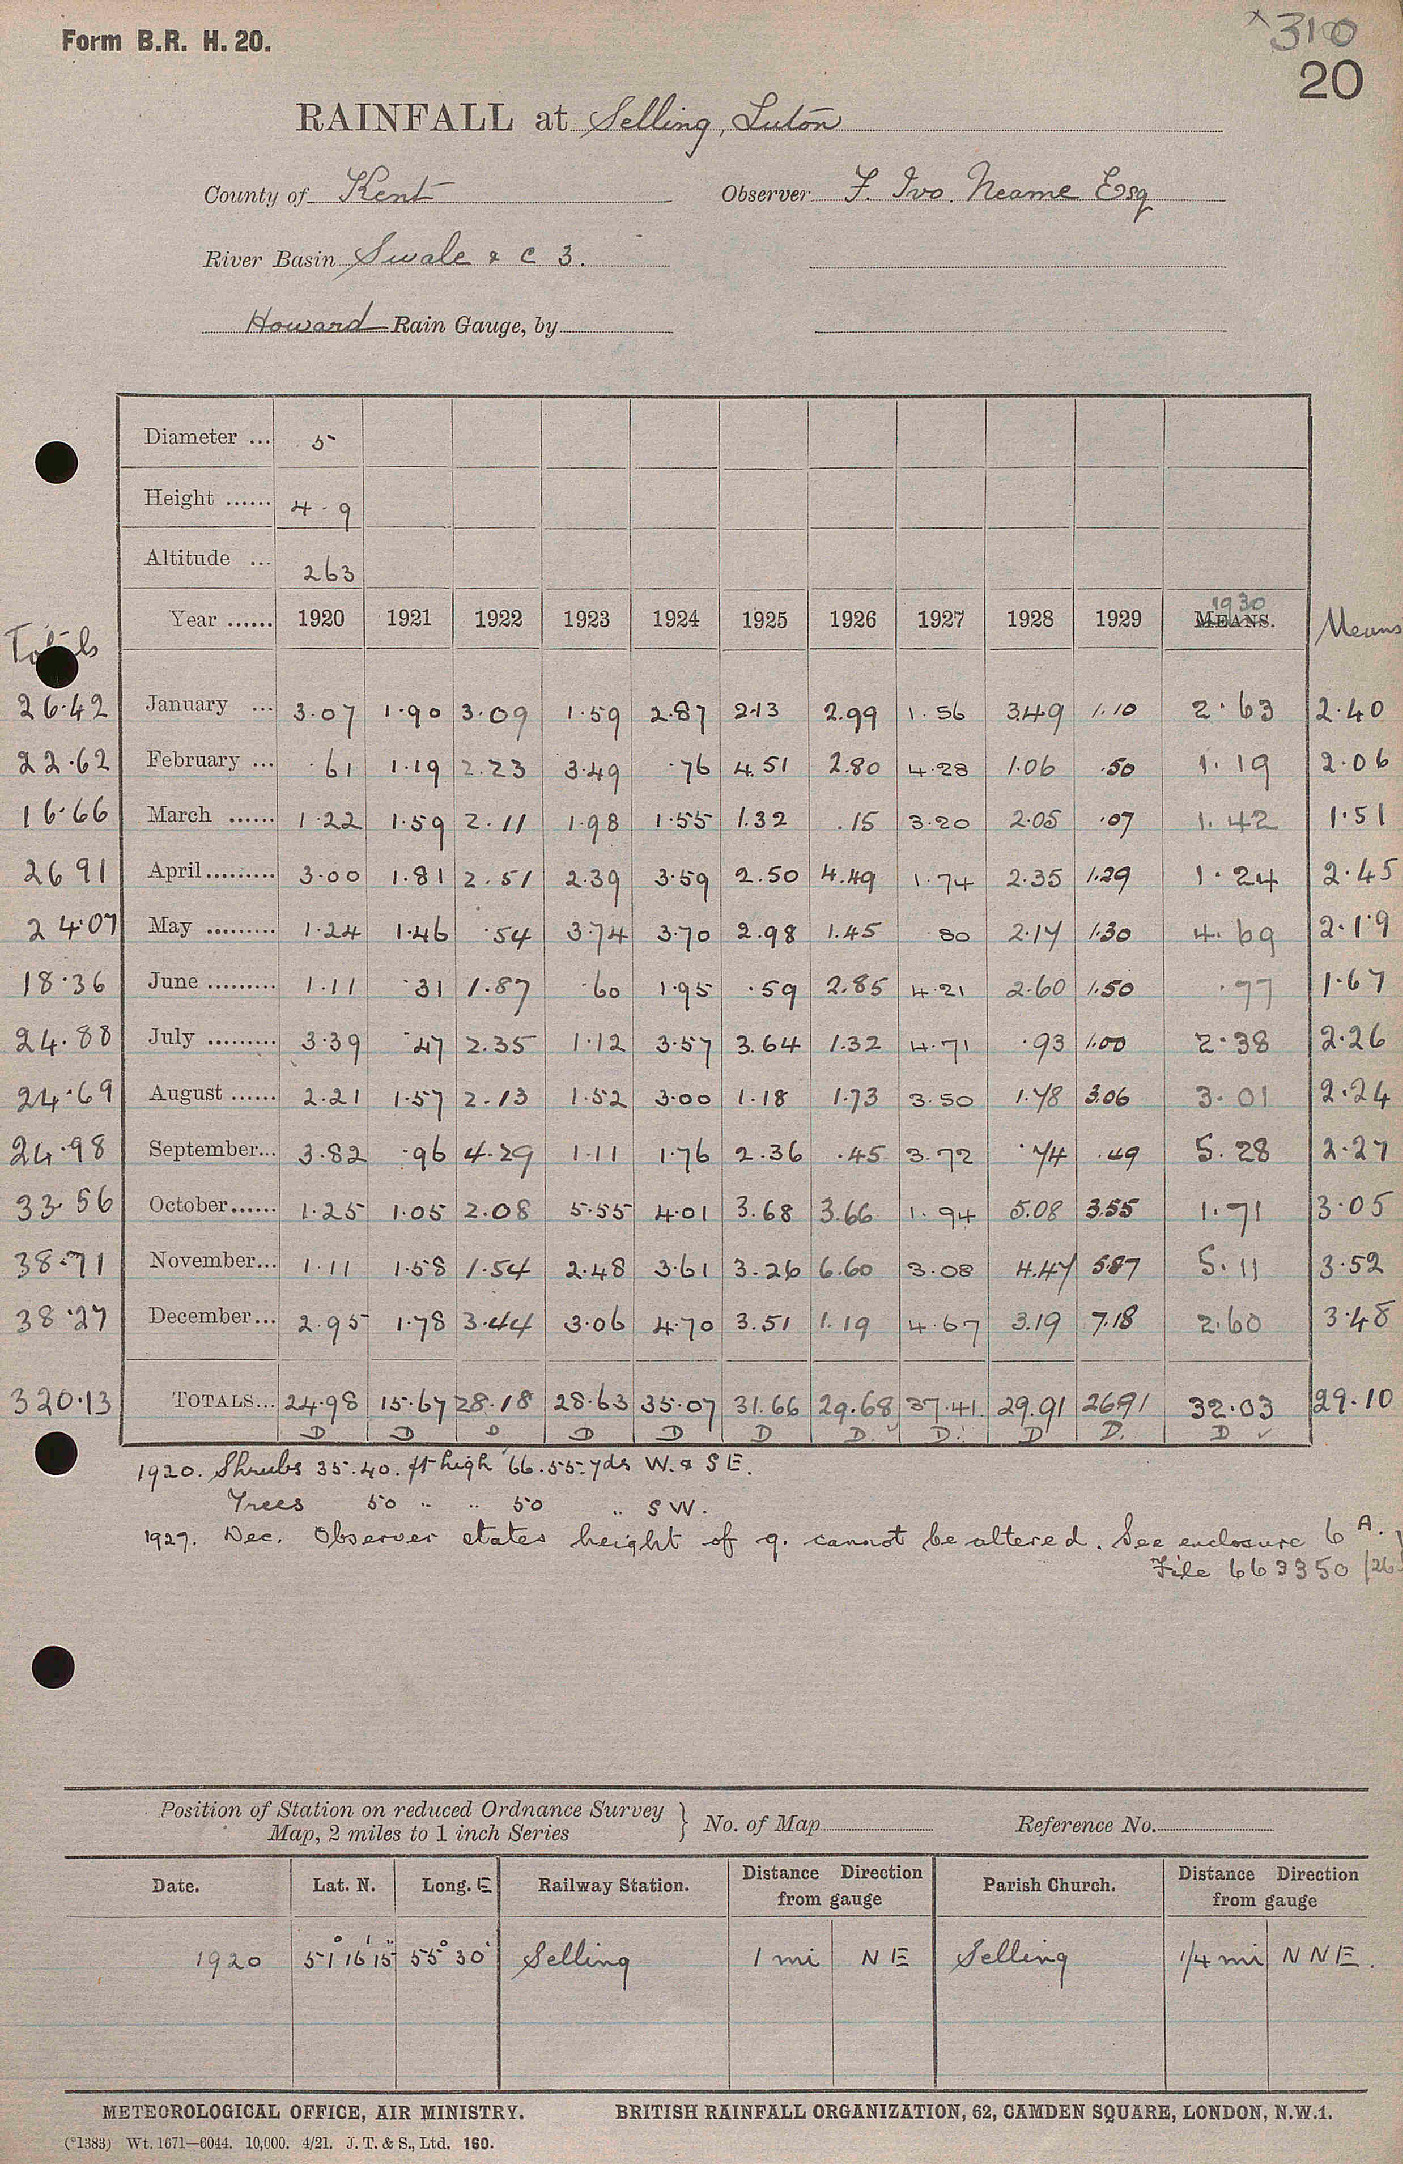 Form B.R. H. 20.
× 310
20
RAINFALL at Selling, Luton
County of Kent Observer F. Ivo. Neame Esq
River Basin Swale & C 3.
Howard Rain Gauge, by
Diameter ... 5
Height ...... 4 . 9
Altitude ... 263
Totals Year ...... 1920 1921 1922 1923 1924 1925 1926 1927 1928 1929 1930 MEANS. Means
26.42 January ... 3.07 1.90 3.09 1.59 2.87 2.13 2.99 1.56 3.49 1.10 2.63 2.40
22.62 February ... .61 1.19 2.23 3.49 .76 4.51 2.80 4.28 1.06 .50 1.19 2.06
16.66 March ...... 1.22 1.59 2.11 1.98 1.55 1.32 .15 3.20 2.05 .07 1.42 1.51
26 91 April......... 3.00 1.81 2.51 2.39 3.59 2.50 4.49 1.74 2.35 1.29 1.24 2.45
24.07 May ......... 1.24 1.46 .54 3.74 3.70 2.98 1.45 80 2.17 1.30 4.69 2.19
18.36 June ......... 1.11 .31 1.87 .60 1.95 .59 2.85 4.21 2.60 1.50 .77 1.67
24.88 July ......... 3.39 .47 2.35 1.12 3.57 3.64 1.32 4.71 .93 1.00 2.38 2.26
24.69 August ...... 2.21 1.57 2.13 1.52 3.00 1.18 1.73 3.50 1.78 3.06 3.01 2.24
24.98 September... 3.82 .96 4.29 1.11 1.76 2.36 .45 3.72 .74 .49 5.28 2.27
33.56 October...... 1.25 1.05 2.08 5.55 4.01 3.68 3.66 1.94 5.08 3.55 1.71 3.05
38.71 November... 1.11 1.58 1.54 2.48 3.61 3.26 6.60 3.08 4.47 5.87 5.11 3.52
38.27 December... 2.95 1.78 3.44 3.06 4.70 3.51 1.19 4.67 3.19 7.18 2.60 3.48
320.13 TOTALS... 24.98 15.67 28.18 28.63 35.07 31.66 29.68 37.41 29.91 26.91 32.03 29.10
D D D D D D D. D. D D. D ✓
1920. Shrubs 35.40. ft high 66.55. yds W. & SE.
Trees 50 " " 50 " SW.
1927. Dec. Observer states height of g. cannot be altered. See enclosure 6 A.
File 663350/26
Position of Station on reduced Ordnance Survey
Map, 2 miles to 1 inch Series } No. of Map Reference No.
Date. Lat. N. Long. E Railway Station. Distance Direction from gauge Parish Church. Distance Direction from gauge
1920 51° 16' 15" 55° 30' Selling 1 mi NE Selling 1/4 mi NNE.
METEOROLOGICAL OFFICE, AIR MINISTRY. BRITISH RAINFALL ORGANIZATION, 62, CAMDEN SQUARE, LONDON, N.W.1.
(*1383) Wt. 1671—6044. 10,000. 4/21. J. T. & S., Ltd. 160.